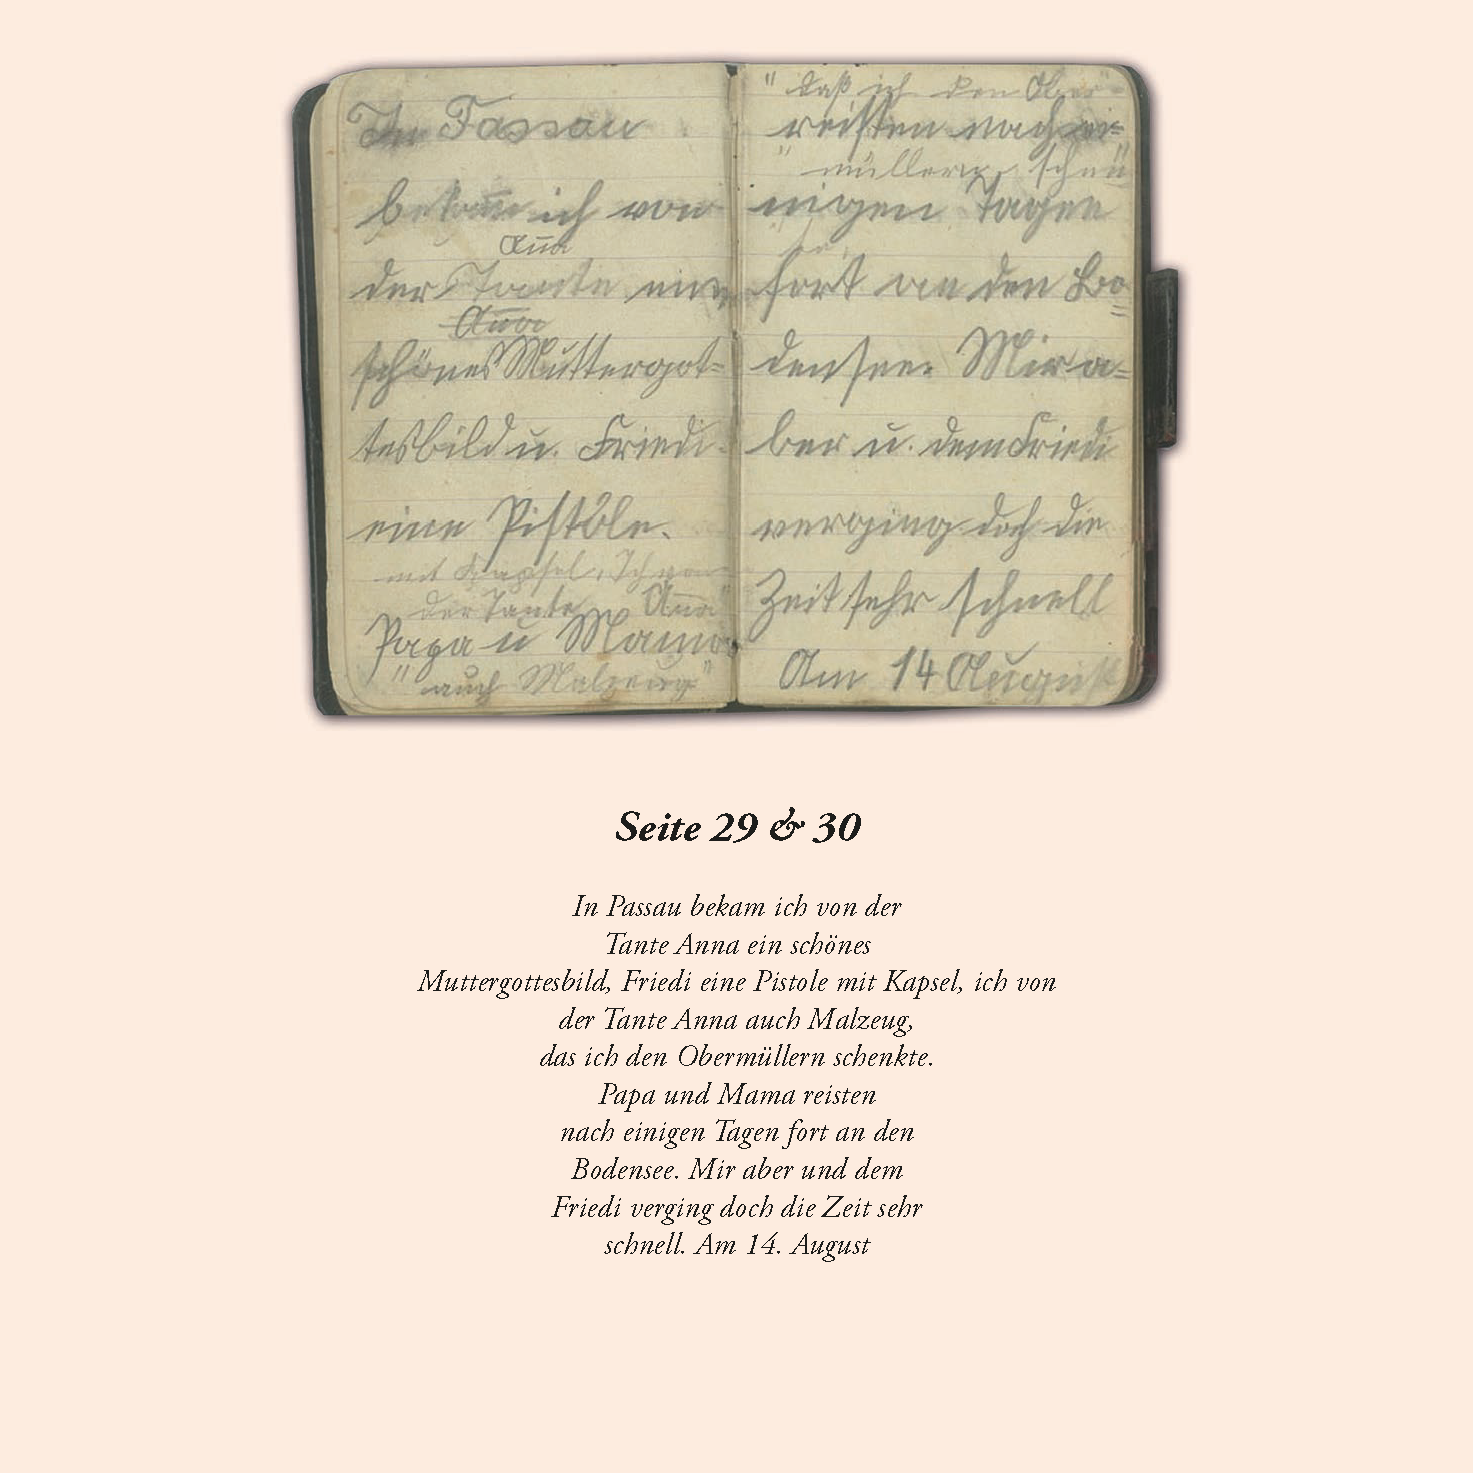 In Passau
bekam̅ ich von
Ana̅
der Tante ein
Ana̅
schönes Muttergot=
tesbild u. Friedi
eine Pistole.
mit Kapsel. Ich von
der Tante Ana̅"
Papa u Mama
" auch Malzeug "
" daß ich den Ober"=
reisten nach ei=
" müllern schen
nigen Tagen
fort an den Bo
=
densee. Mir a=
ber u. dem Friedi
verging doch die
Zeit sehr schnell
Am 14 August
Seite 29 & 30
In Passau bekam ich von der
Tante Anna ein schönes
Muttergottesbild, Friedi eine Pistole mit Kapsel, ich von
der Tante Anna auch Malzeug,
das ich den Obermüllern schenkte.
Papa und Mama reisten
nach einigen Tagen fort an den
Bodensee. Mir aber und dem
Friedi verging doch die Zeit sehr
schnell. Am 14. August